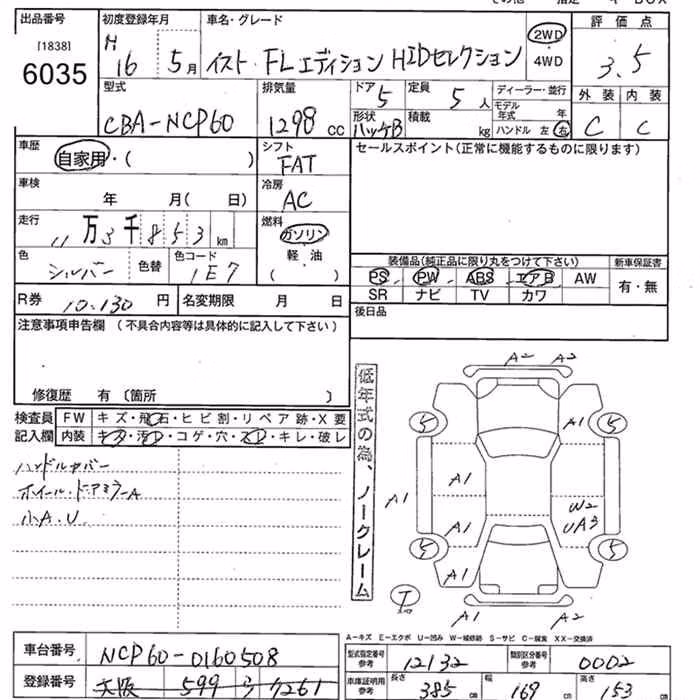 出品番号
[1838]
6035
初度登録年月
H 16 5月
車名・グレード
イスト・FLエディション HIDセレクション
2WD
4WD
評価点
3.5
外装 内装
C C
型式
CBA-NCP60
排気量
1298 cc
ドア
5
定員
5人
形状
ハッチB
積載
kg
ディーラー・並行
モデル年式 年
ハンドル 左 右
車歴
自家用・( )
車検
年 月( 日)
走行
11万3千853km
色
シルバー
色替
色コード
1E7
シフト
FAT
冷房
AC
燃料
ガソリン
軽・油
( )
セールスポイント(正常に機能するものに限ります)
装備品(純正品に限り丸をつけて下さい)
PS PW ABS エアB AW
SR ナビ TV カワ
新車保証書
有・無
R券 10.130円
名変期限 月 日
後日品
注意事項申告欄 (不具合内容等は具体的に記入して下さい)
修復歴 有〔箇所 〕
検査員
記入欄
FW キズ・飛石・ヒビ割・リペア跡・X要
内装 キズ・汚レ・コゲ・穴・スレ・キレ・破レ
ハンドルカバー
ホイール・ドアミラーA
小A.U
低年式の為、ノークレーム
A2 A2
5 5
A1
A1
A1
A1
W2
UA3
5 5
A1
T
A1 A2
A-キズ E-エクボ U-凹み W-補修跡 S-サビ C-腐食 XX-交換済
車台番号 NCP60-0160508
登録番号 大阪 599 ラ 7261
型式指定番号
参考
12132
類別区分番号
参考
0002
車庫証明用
参考
長さ 385 cm
幅 169 cm
高さ 153 cm